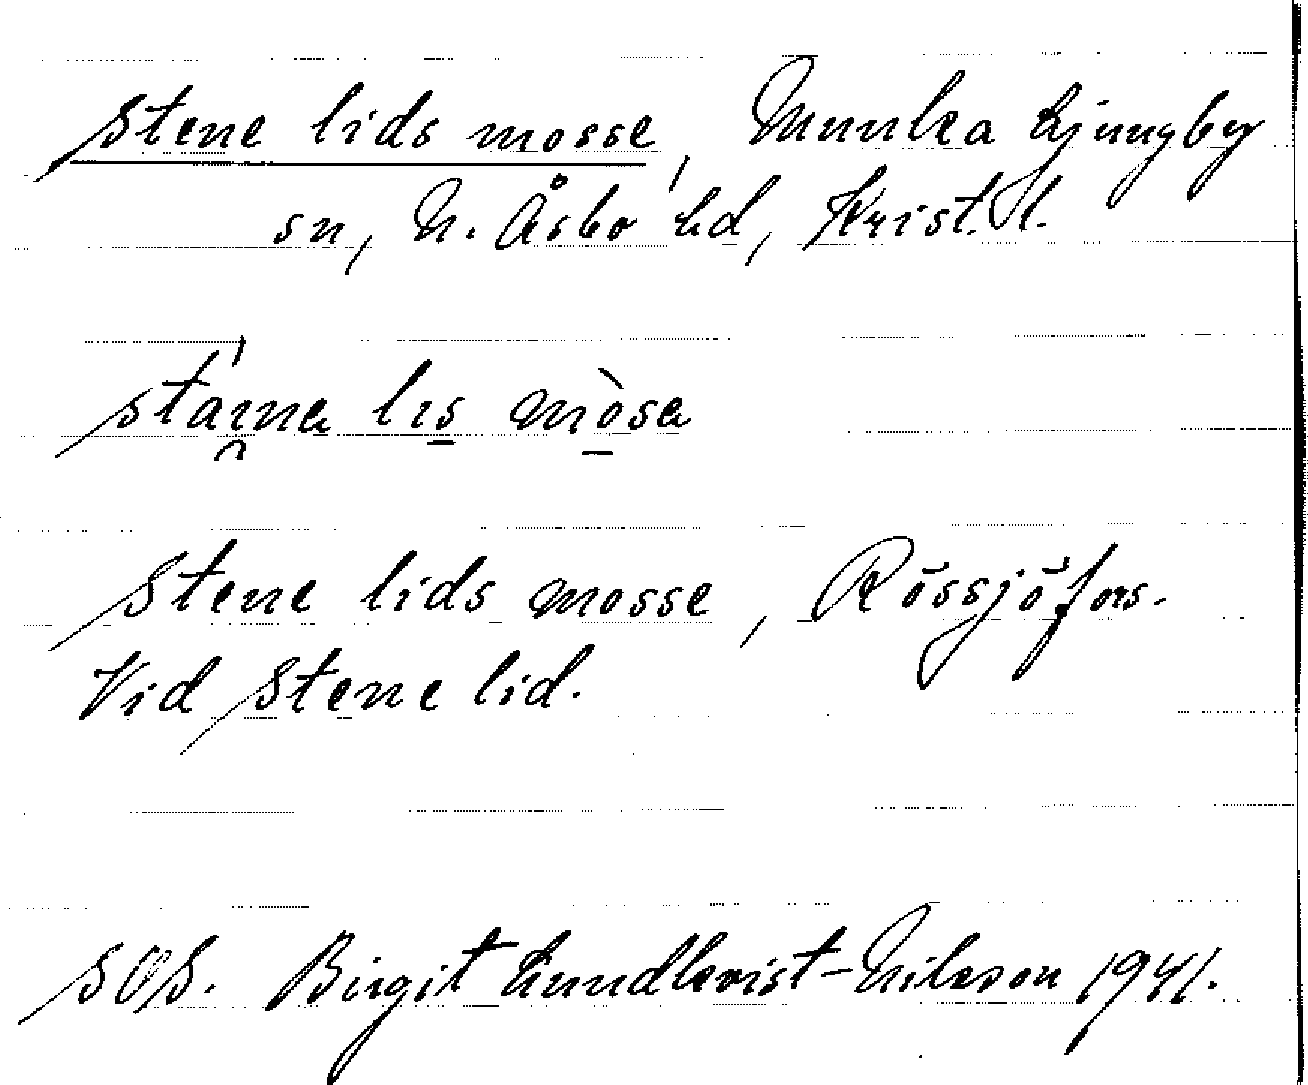 Stene lids mosse, Munka Ljungby
sn, N. Åsbo hd, Krist. l.
stáɪna lɪs mòsa
Stene lids mosse, Rössjöfors.
Vid Stene lid.
SOS. Birgit Lundkvist-Nilsson 1941.